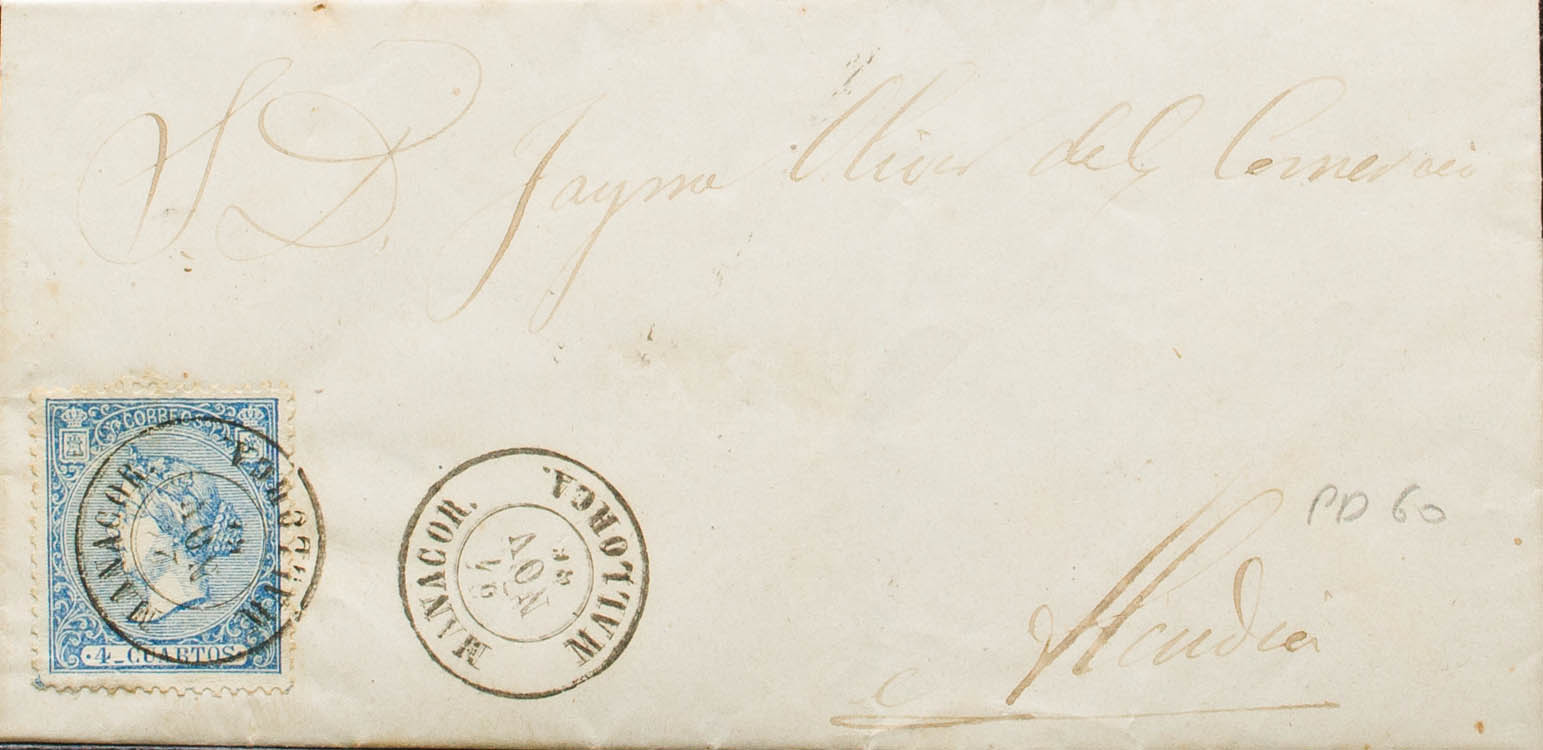 S. D. Jayme Oliver del Comercio
CORREOS
MANACOR.
MALLORCA.
NOV
4 CUARTOS
MANACOR.
MALLORCA.
NOV
PD 60
Alcudia